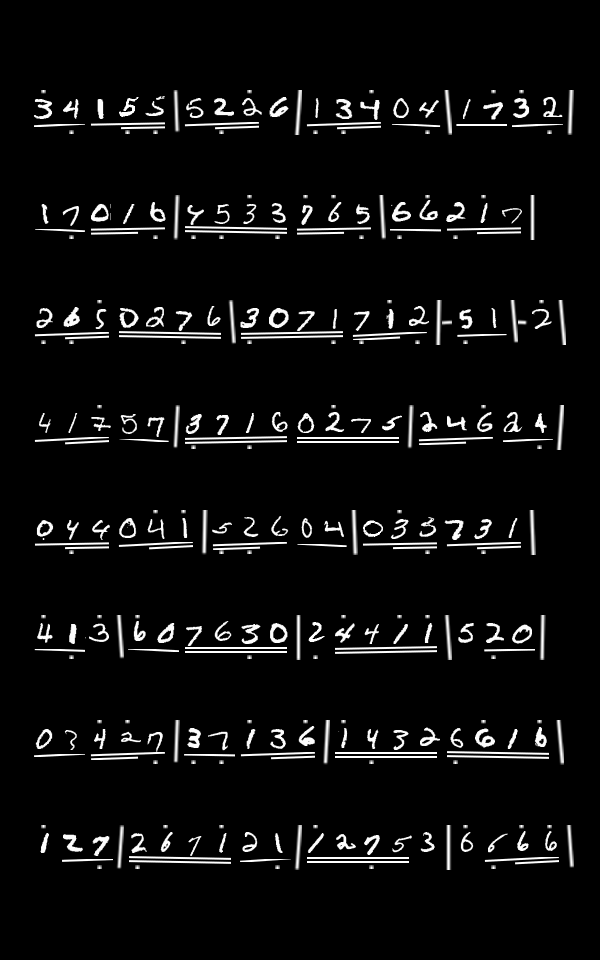 34155|5226|13404|1732|
17016|4533765|66217|
2650276|3071712|-51|-2|
41757|37160275|24624|
044041|52604|033731|
413|607630|24411|520|
03427|37136|14326616|
127|267121|12753|6666|